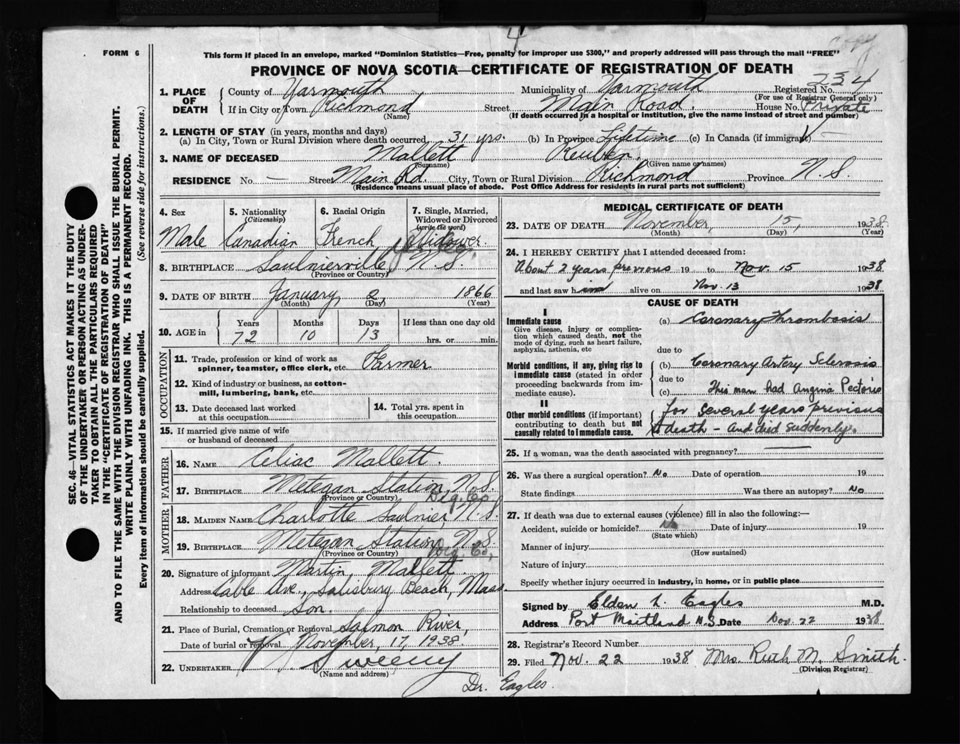 4
Copy
FORM 6
This form if placed in an envelope, marked "Dominion Statistics—Free, penalty for improper use $300," and properly addressed will pass through the mail "FREE"
PROVINCE OF NOVA SCOTIA—CERTIFICATE OF REGISTRATION OF DEATH
234
1. PLACE OF DEATH County of Yarmouth Municipality of Yarmouth Registered No.
(For use of Registrar General only)
If in City or Town Richmond Street Main Road. House No. Private
(Name) (If death occurred in a hospital or institution, give the name instead of street and number)
2. LENGTH OF STAY (in years, months and days)
(a) In City, Town or Rural Division where death occurred, 31 yrs. (b) In Province Lifetime (c) In Canada (if immigrant)
3. NAME OF DECEASED Mallett Reuben.
(Surname) (Given name or names)
RESIDENCE No. — Street Main Rd. City, Town or Rural Division Richmond Province N.S.
(Residence means usual place of abode. Post Office Address for residents in rural parts not sufficient)
4. Sex 5. Nationality (Citizenship) 6. Racial Origin 7. Single, Married, Widowed or Divorced (write the word)
Male Canadian French Widower
8. BIRTHPLACE Saulnierville, N.S.
(Province or Country)
9. DATE OF BIRTH January 2 1866
(Month) (Day) (Year)
10. AGE in Years Months Days If less than one day
72 10 13 hrs. or min.
OCCUPATION
11. Trade, profession or kind of work as spinner, teamster, office clerk, etc. Farmer
12. Kind of industry or business, as cotton-mill, lumbering, bank, etc.
13. Date deceased last worked at this occupation 14. Total yrs. spent in this occupation
15. If married give name of wife or husband of deceased
FATHER
16. NAME Celiac Mallett.
17. BIRTHPLACE Metegan Station, N.S.
(Province or Country) Dig. Co.
MOTHER
18. MAIDEN NAME Charlotte Saulnier N.S.
19. BIRTHPLACE Metegan Station, N.S.
(Province or Country) Dig. Co.
20. Signature of informant Martin Mallett.
Address Cable Ave., Salisbury Beach, Mass.
Relationship to deceased Son.
21. Place of Burial, Cremation or Removal Salmon River,
Date of burial or removal November, 17, 1938.
22. UNDERTAKER Sweeny
(Name and address)
Dr. Eagles.
MEDICAL CERTIFICATE OF DEATH
23. DATE OF DEATH November, 15, 1938.
(Month) (Day) (Year)
24. I HEREBY CERTIFY that I attended deceased from:
About 2 years previous 19 to Nov. 15 1938
and last saw him alive on Nov. 13 1938
CAUSE OF DEATH
I
Immediate cause
Give disease, injury or complication which caused death, not the mode of dying, such as heart failure, asphyxia, asthenia, etc
(a) Coronary Thrombosis
due to
Morbid conditions, if any, giving rise to immediate cause (stated in order proceeding backwards from immediate cause).
(b) Coronary Artery Sclerosis
due to
(c) This man had Angina Pectoris
II
Other morbid conditions (if important) contributing to death but not causally related to immediate cause.
for several years previous
to death — and died suddenly.
25. If a woman, was the death associated with pregnancy?
26. Was there a surgical operation? No Date of operation 19
State findings Was there an autopsy? No
27. If death was due to external causes (violence) fill in also the following:—
Accident, suicide or homicide? No Date of injury 19
(State which)
Manner of injury
(How sustained)
Nature of injury
Specify whether injury occurred in industry, in home, or in public place
Signed by Elden L. Eagles M.D.
Address Port Maitland N.S. Date Nov. 22 1938
28. Registrar's Record Number
29. Filed Nov. 22 1938 Mrs. Ruth M. Smith.
(Division Registrar)
SEC. 46—VITAL STATISTICS ACT MAKES IT THE DUTY
OF THE UNDERTAKER OR PERSON ACTING AS UNDER-
TAKER TO OBTAIN ALL THE PARTICULARS REQUIRED
IN THE "CERTIFICATE OF REGISTRATION OF DEATH"
AND TO FILE THE SAME WITH THE DIVISION REGISTRAR WHO SHALL ISSUE THE BURIAL PERMIT.
WRITE PLAINLY WITH UNFADING INK. THIS IS A PERMANENT RECORD.
Every item of information should be carefully supplied. (See reverse side for instructions.)